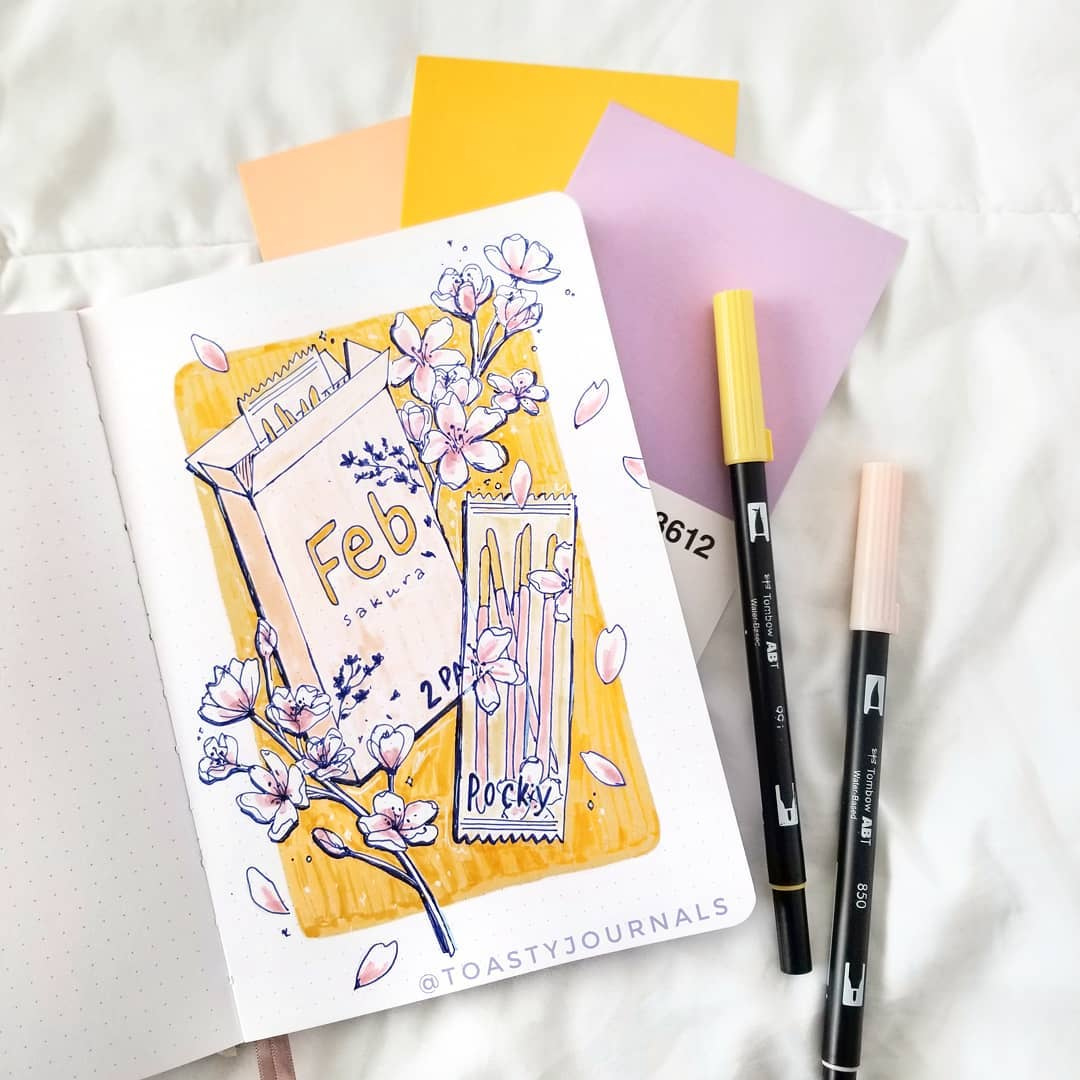 Feb
sakura
2PA
Pocky
@TOASTYJOURNALS
3612
Tombow ABT
Water-Based
991
Tombow ABT
Water-Based
850